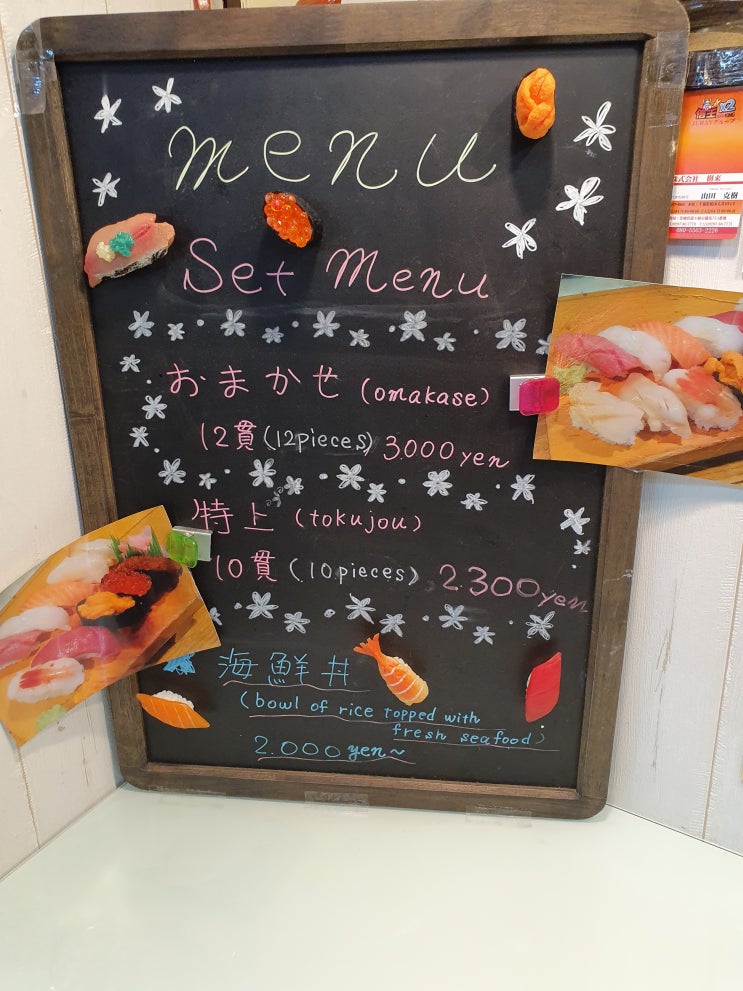 menu
Set Menu
おまかせ (omakase)
12貫 (12pieces) 3.000 yen
特上 (tokujou)
10貫 (10pieces) 2.300 yen
海鮮丼
(bowl of rice topped with
fresh seafood)
2.000 yen~
株式会社 樹来
山田 克樹
080-5503-2226